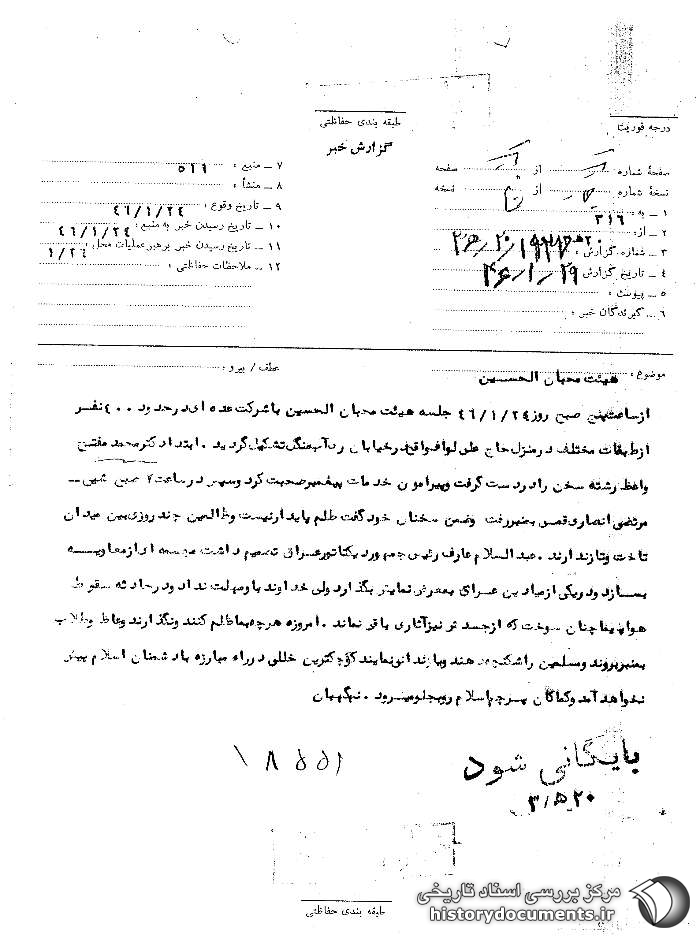 درجه فوریت
طبقه بندی حفاظتی
گزارش خبر
صفحهٔ شماره از صفحه
نسخهٔ شماره از نسخه
۱ ـ به: ۳۱۶
۲ ـ از:
۳ ـ شماره گزارش:
۴ ـ تاریخ گزارش ۴۶/۱/۲۹
۵ ـ پیوست:
۶ ـ گیرندگان خبر:
۷ ـ منبع:
۸ ـ منشأ:
۹ ـ تاریخ وقوع: ۴۶/۱/۲۴
۱۰ ـ تاریخ رسیدن خبر به منبع: ۴۶/۱/۲۴
۱۱ ـ تاریخ رسیدن خبر برهبر عملیات محل: ۱/۲۶
۱۲ ـ ملاحظات حفاظتی:
موضوع: هیئت محبان الحسین
عطف / پیرو:
از ساعت پنج صبح روز ۴۶/۱/۲۴ جلسه هیئت محبان الحسین با شرکت عده ای در حدود ۴۰۰ نفر
از طبقات مختلف در منزل حاج علی لواف واقع در خیابان تشکیل گردید . ابتدا دکتر محمد مفتح
واعظ رشته سخن را در دست گرفت و پیرامون خدمات پیغمبر صحبت کرد و سپس در ساعت
مرتضی انصاری قمی بمنبر رفت و ضمن سخنان خود گفت ظلم پایدار نیست و ظالمین چند روزی بین میدان
تاخت و تاز دارند . عبدالسلام عارف رئیس جمهور دیکتاتور عراق تصمیم داشت مجسمه ای از معاویه
بسازد و در یکی از میادین عراق بمعرض نمایش بگذارد ولی خداوند باو مهلت نداد و در حادثه سقوط
هواپیما چنان سوخت که از جسدش نیز آثاری باقی نماند . امروزه هرچه بما ظلم کنند و نگذارند وعاظ و طلاب
بمنبر بروند و مسلمین را شکنجه دهند و یا زندانی نمایند کوچکترین خللی در راه مبارزه با دشمنان اسلام پیش
نخواهد آمد و کماکان پرچم اسلام رو بجلو میرود . نگهبان
بایگانی شود
۱۸۵۵۱
۳/۵/۲۰
طبقه بندی حفاظتی
مرکز بررسی اسناد تاریخی
historydocuments.ir